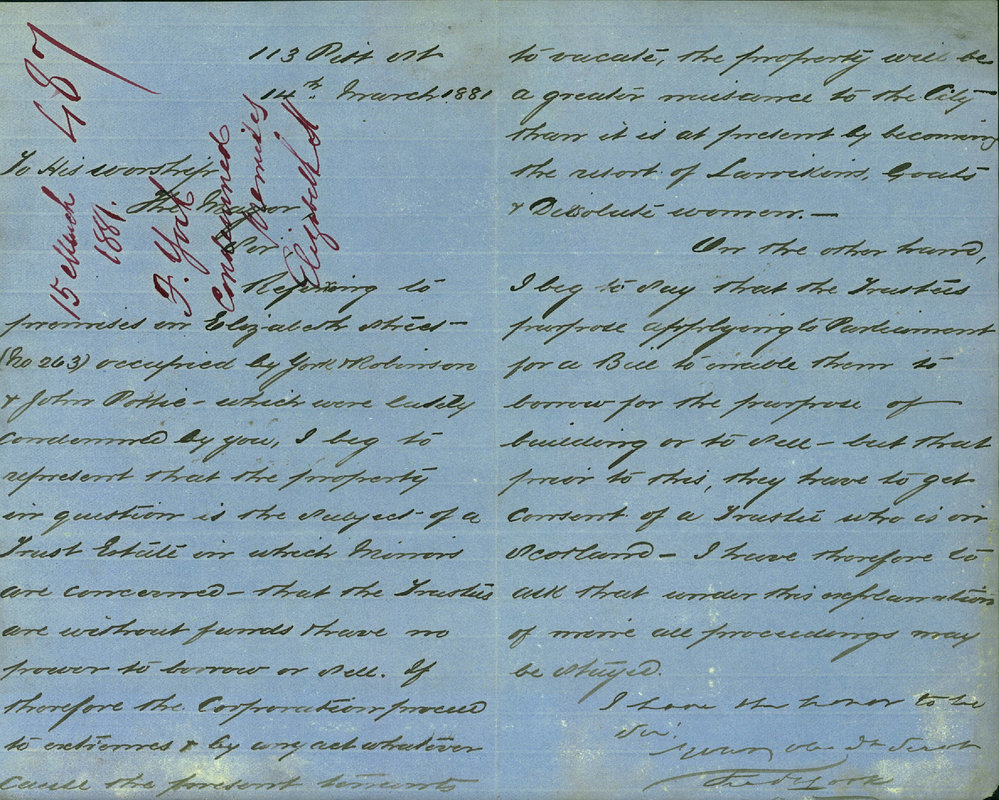 487
15 March
1881.
F. York
Condemned
premises
Elizabeth St
113 Pitt St
14th March 1881
To His Worship
The Mayor
Sir
Referring to
premises in Elizabeth Street -
(No 263) occupied by York & Robinson
& John Pottie - which were lately
condemned by you, I beg to
represent that the property
in question is the subject of a
Trust Estate in which Minors
are concerned - that the Trustees
are without funds & have no
power to borrow or sell. If
therefore the Corporation proceed
to extremes & by any act whatever
cause the present tenants
to vacate, the property will be
a greater nuisance to the City
than it is at present by becoming
the resort of Larrikins, Goats
& Dissolute women. -
On the other hand,
I beg to say that the Trustees
purpose applying to Parliament
for a Bill to enable them to
borrow for the purpose of
building or to sell - but that
prior to this, they have to get
consent of a Trustee who is in
Scotland - I have therefore to
ask that under this explanation
of mine all proceedings may
be stayed.
I have the honor to be
Sir,
Your obedt Servt
York